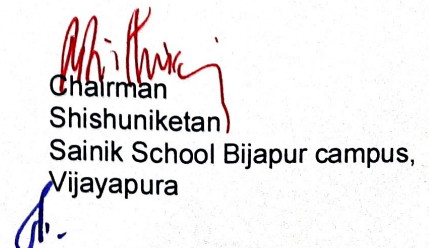 Chairman
Shishuniketan
Sainik School Bijapur campus,
Vijayapura